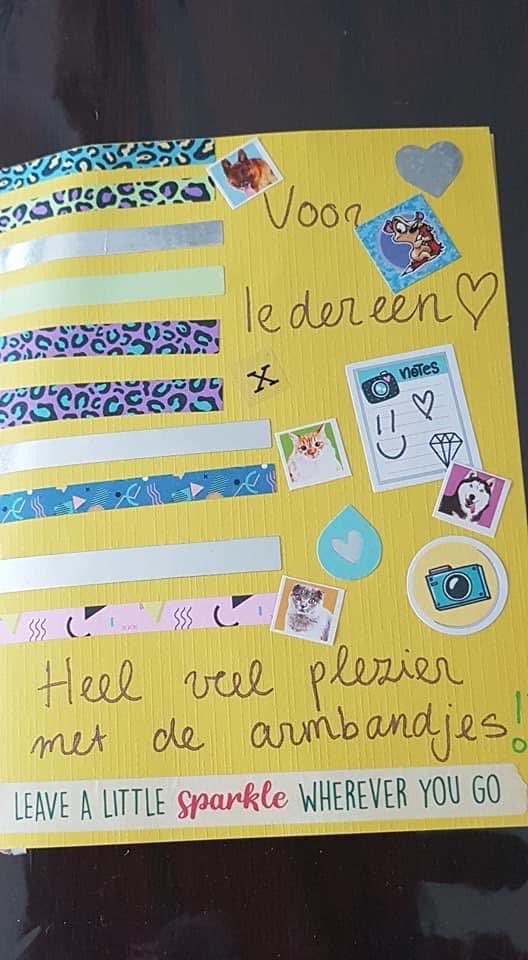 Voor
Iedereen
X
NOTES
Heel veel plezier
met de armbandjes!
LEAVE A LITTLE sparkle WHEREVER YOU GO